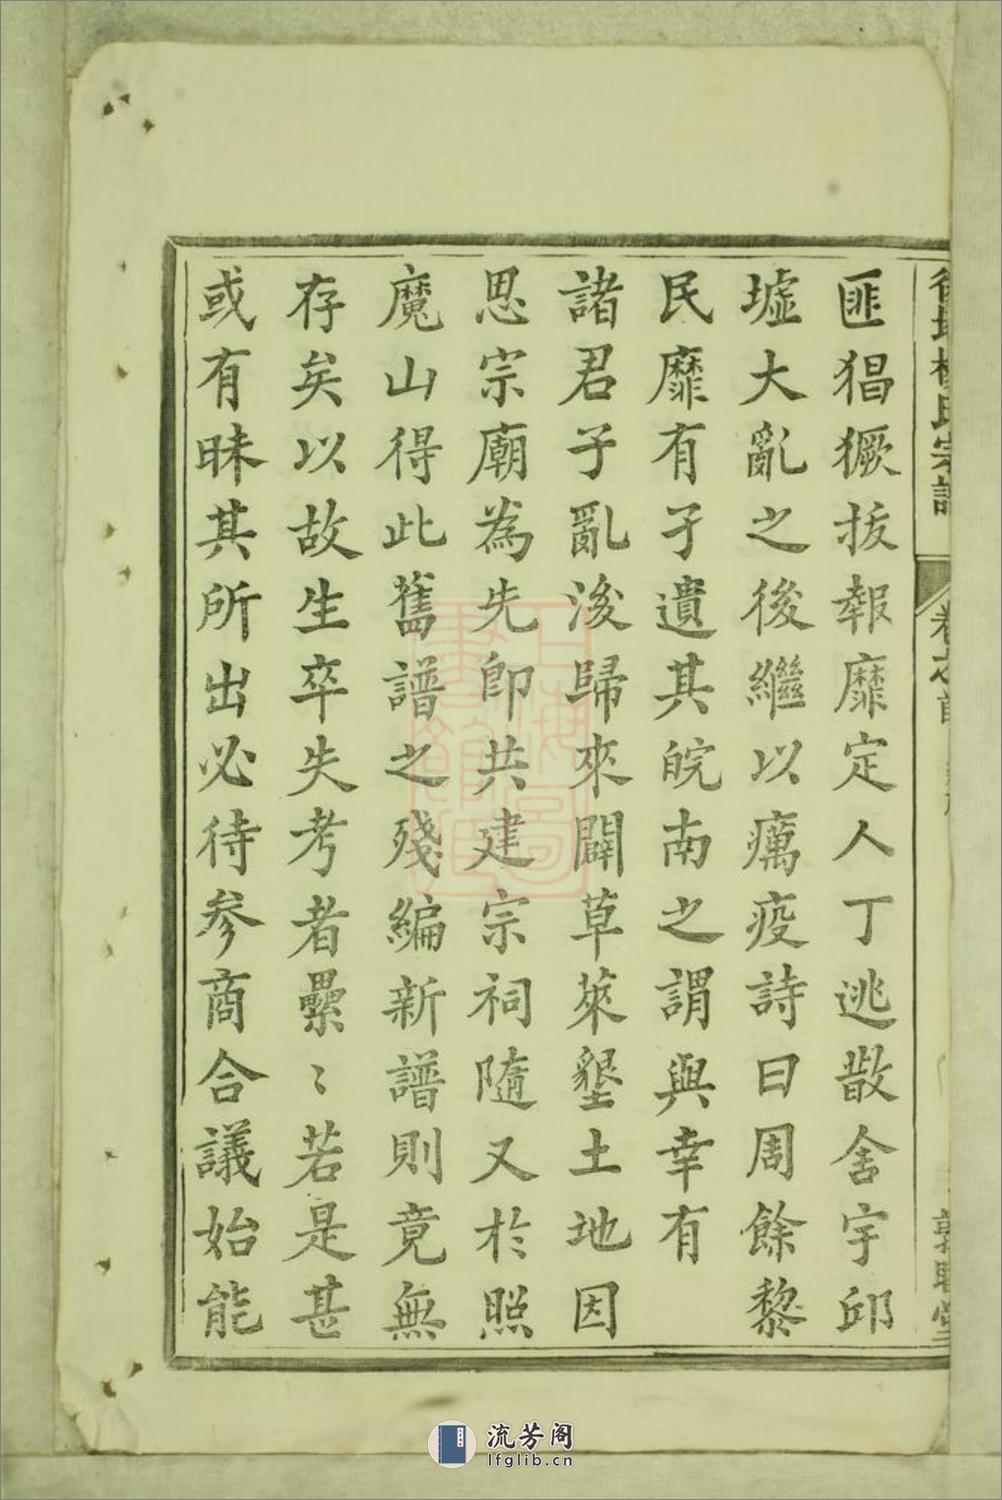 匪猖獗扳報靡定人丁逃散舍宇邱
墟大亂之後繼以癘疫詩曰周餘黎
民靡有孑遺其皖南之謂與幸有
諸君子亂後歸來闢草萊墾土地因
思宗廟為先即共建宗祠隨又於照
魔山得此舊譜之殘編新譜則竟無
存矣以故生卒失考者纍〻若是甚
或有昧其所出必待參商合議始能
氏宗譜
卷之首
上海圖書館藏
流芳阁
lfglib.cn